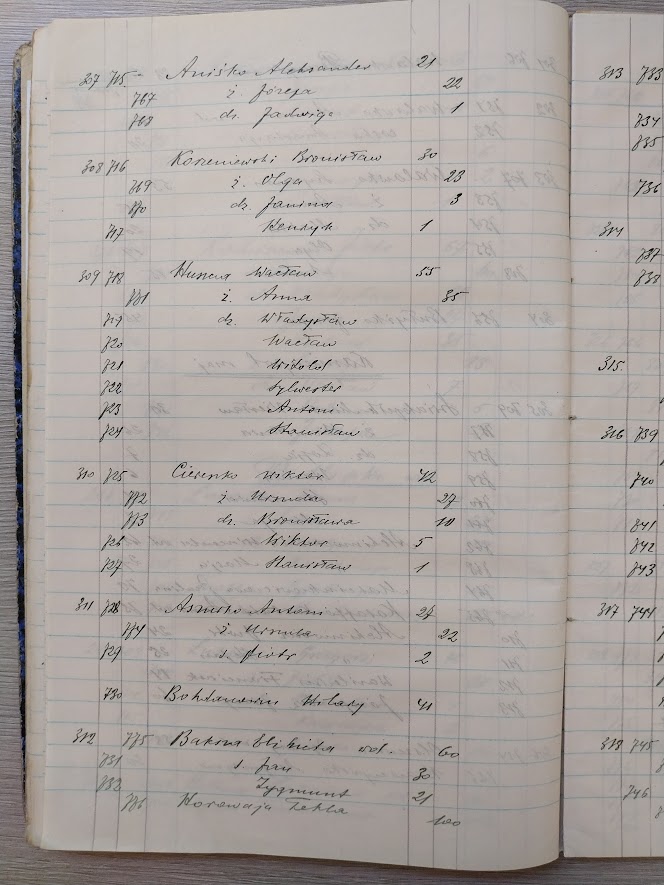 307 715 Aniśko Aleksander 21
767 ż. Józefa 22
768 dz. Jadwiga 1
308 716 Korzeniewski Bronisław 30
769 ż. Olga 23
770 dz. Janina 3
717 Henryk 1
309 718 Wacław 55
771 ż. Anna 35
719 dz. Władysław
720 Wacław
721 Witold
722 Sylwester
723 Antoni
724 Stanisław
310 725 Wiktor 42
772 ż. Urszula 27
773 dz. Bronisława 10
726 Wiktor 5
727 Stanisław 1
311 728 Antoni 27
774 ż. Urszula 22
729 s. Piotr 2
730 Bohdanowicz Hilary 41
312 775 Elżbieta wd. 60
731 s. Jan 30
732 Zygmunt 21
776 Horowaja Tekla 100
313 733
734
735
736
314
737
738
315.
316 739
740
741
742
743
317 744
318 745
746